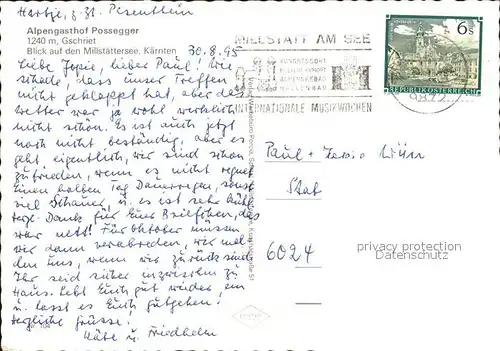 Hartje, z. Zt. Pesenthein
Alpengasthof Possegger
1240 m, Gschriet
Blick auf den Millstättersee, Kärnten
30.8.95
Liebe Josie, lieber Paul! Wie
schade, dass unser Treffen
nicht geklappt hat, aber das
Wetter war ja wohl wirklich
nicht schön. Es ist auch jetzt
noch nicht beständig, aber es
geht eigentlich, wir sind schon
zufrieden, wenn es nicht regnet.
Einen halben Tag Dauerregen, sonst
viel Schauer, u. es ist sehr kühl
Dank für Euer Briefchen, das
war nett! Für Oktober müssen
wir dann verabreden, wir mel-
den uns, wenn wir zurück sind.
Ihr seid sicher inzwischen zu
Haus. Lebt Euch gut wieder ein
u. lasst es Euch gutgehen!
Herzliche Grüsse,
Käte u. Friedhelm
MILLSTATT AM SEE
INTERNATIONALE MUSIKWOCHEN
9872
6 S
REPUBLIK ÖSTERREICH
Paul +
6024
privacy protection
Datenschutz